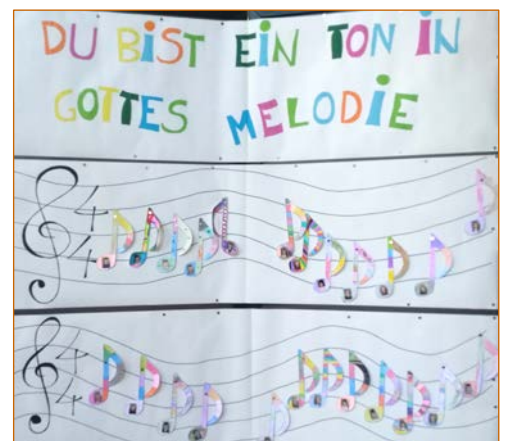 DU BIST EIN TON IN
GOTTES MELODIE
4
4
4
4